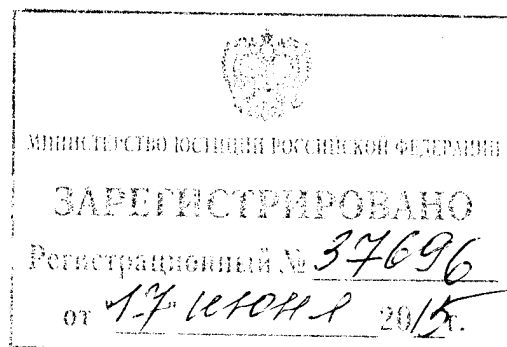 МИНИСТЕРСТВО ЮСТИЦИИ РОССИЙСКОЙ ФЕДЕРАЦИИ
ЗАРЕГИСТРИРОВАНО
Регистрационный № 37696
от 17 июня 2015 г.